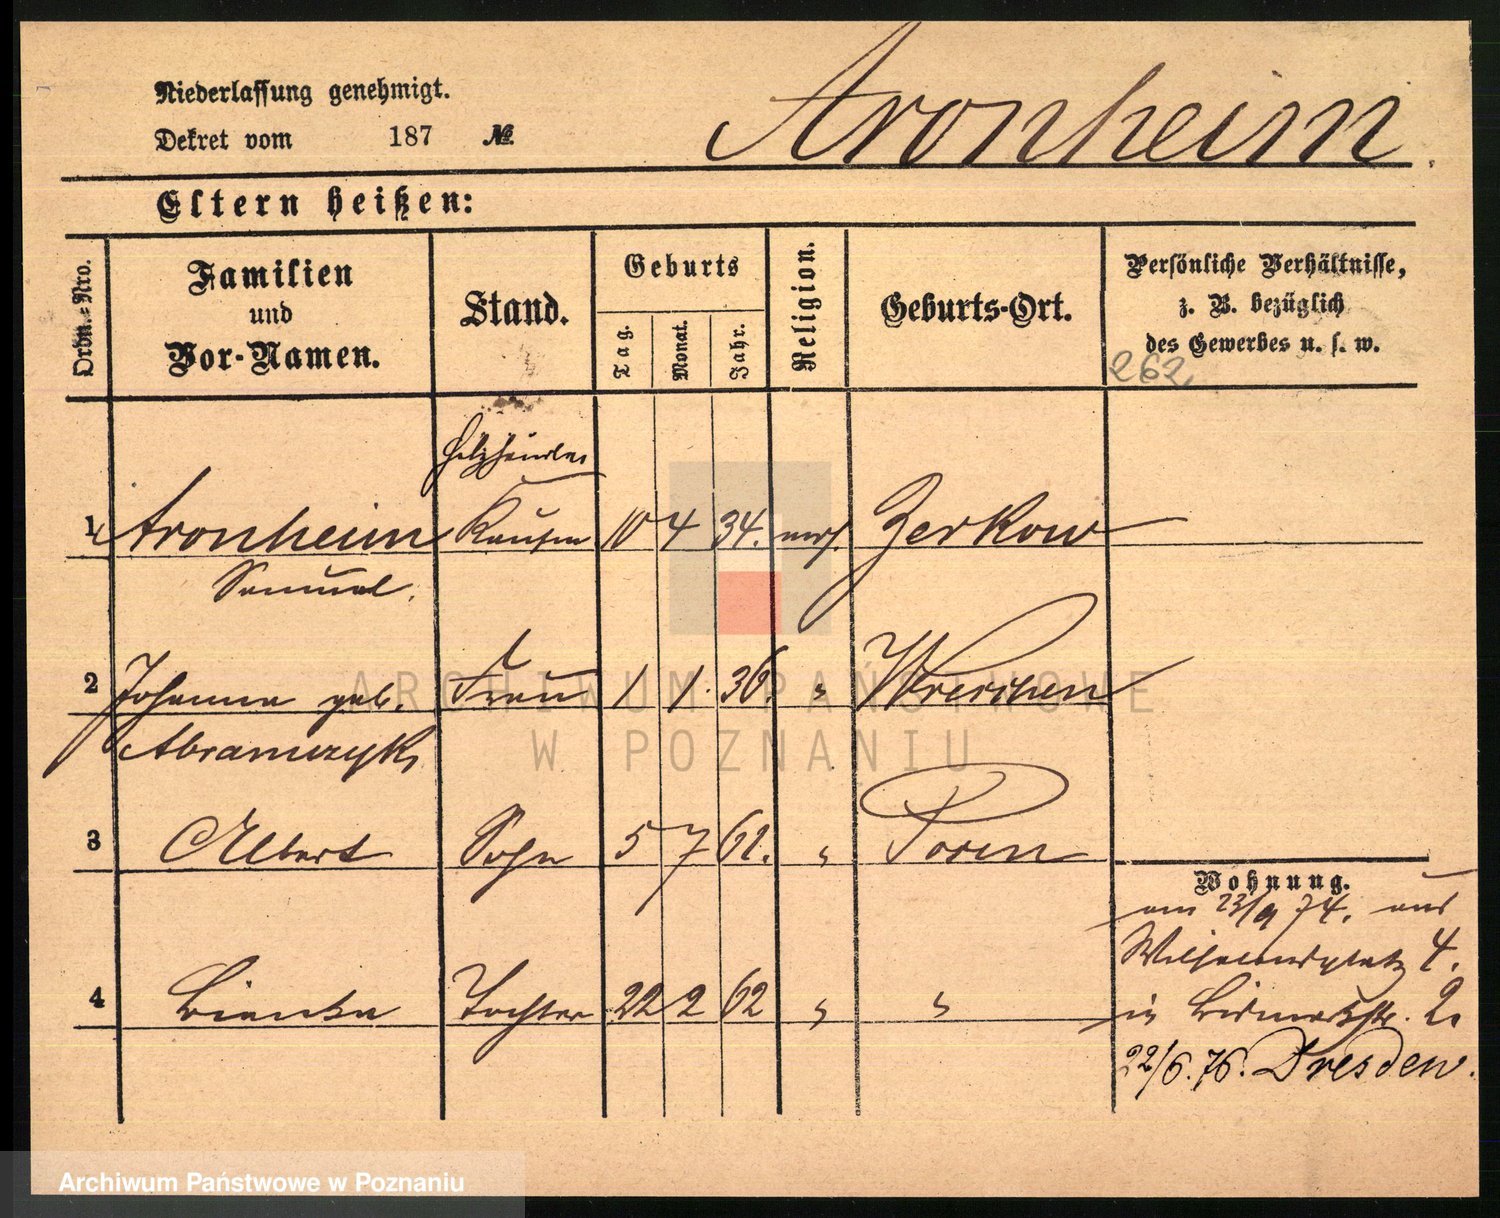 Niederlassung genehmigt.
Dekret vom 187 №
Aronheim.
Eltern heißen:
Ordn.-Nro.
Familien
und
Vor-Namen.
Stand.
Geburts
Tag.
Monat.
Jahr.
Religion.
Geburts-Ort.
Persönliche Verhältnisse,
z. B. bezüglich
des Gewerbes u. s. w.
262
Holzhändler
1 Aronheim Kaufm 10 4 34. mos. Zerkow
Samuel.
2 Johanna geb. Frau 1 1. 36. " Wreschen
Abramczyk
3 Albert Sohn 5 7 61. " Posen
Wohnung.
am 23/9 74. aus
Wilhelmsplatz 4.
4 Bianka Tochter 22 2 62 " "
in Bismarckstr. 2.
22/6. 76. Dresden.
ARCHIWUM PAŃSTWOWE
W POZNANIU
Archiwum Państwowe w Poznaniu